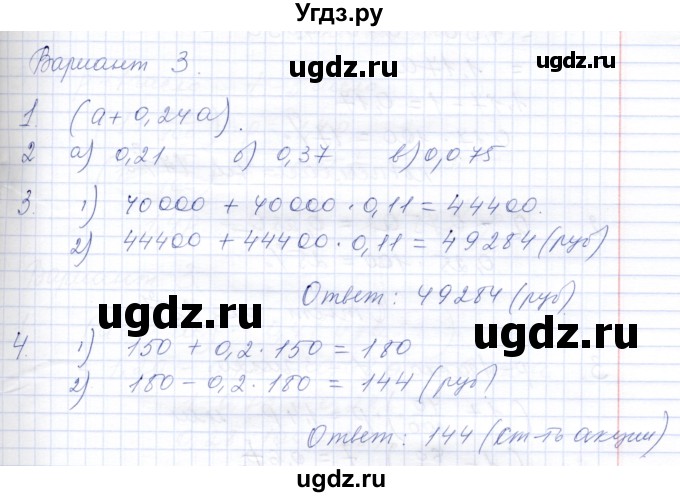 Угдз.ру
Вариант 3.
ugdz.ru ugdz.ru
1. (a + 0,24a).
2 а) 0,21 б) 0,37 в) 0,075
3. 1) 40000 + 40000 · 0,11 = 44400.
2) 44400 + 44400 · 0,11 = 49284 (руб)
ugdz.ru ugdz.ru
Ответ: 49284 (руб)
4. 1) 150 + 0,2 · 150 = 180
2) 180 - 0,2 · 180 = 144 (руб)
ugdz.ru ugdz.ru
Ответ: 144 (ст-ть акции)
ugdz.ru